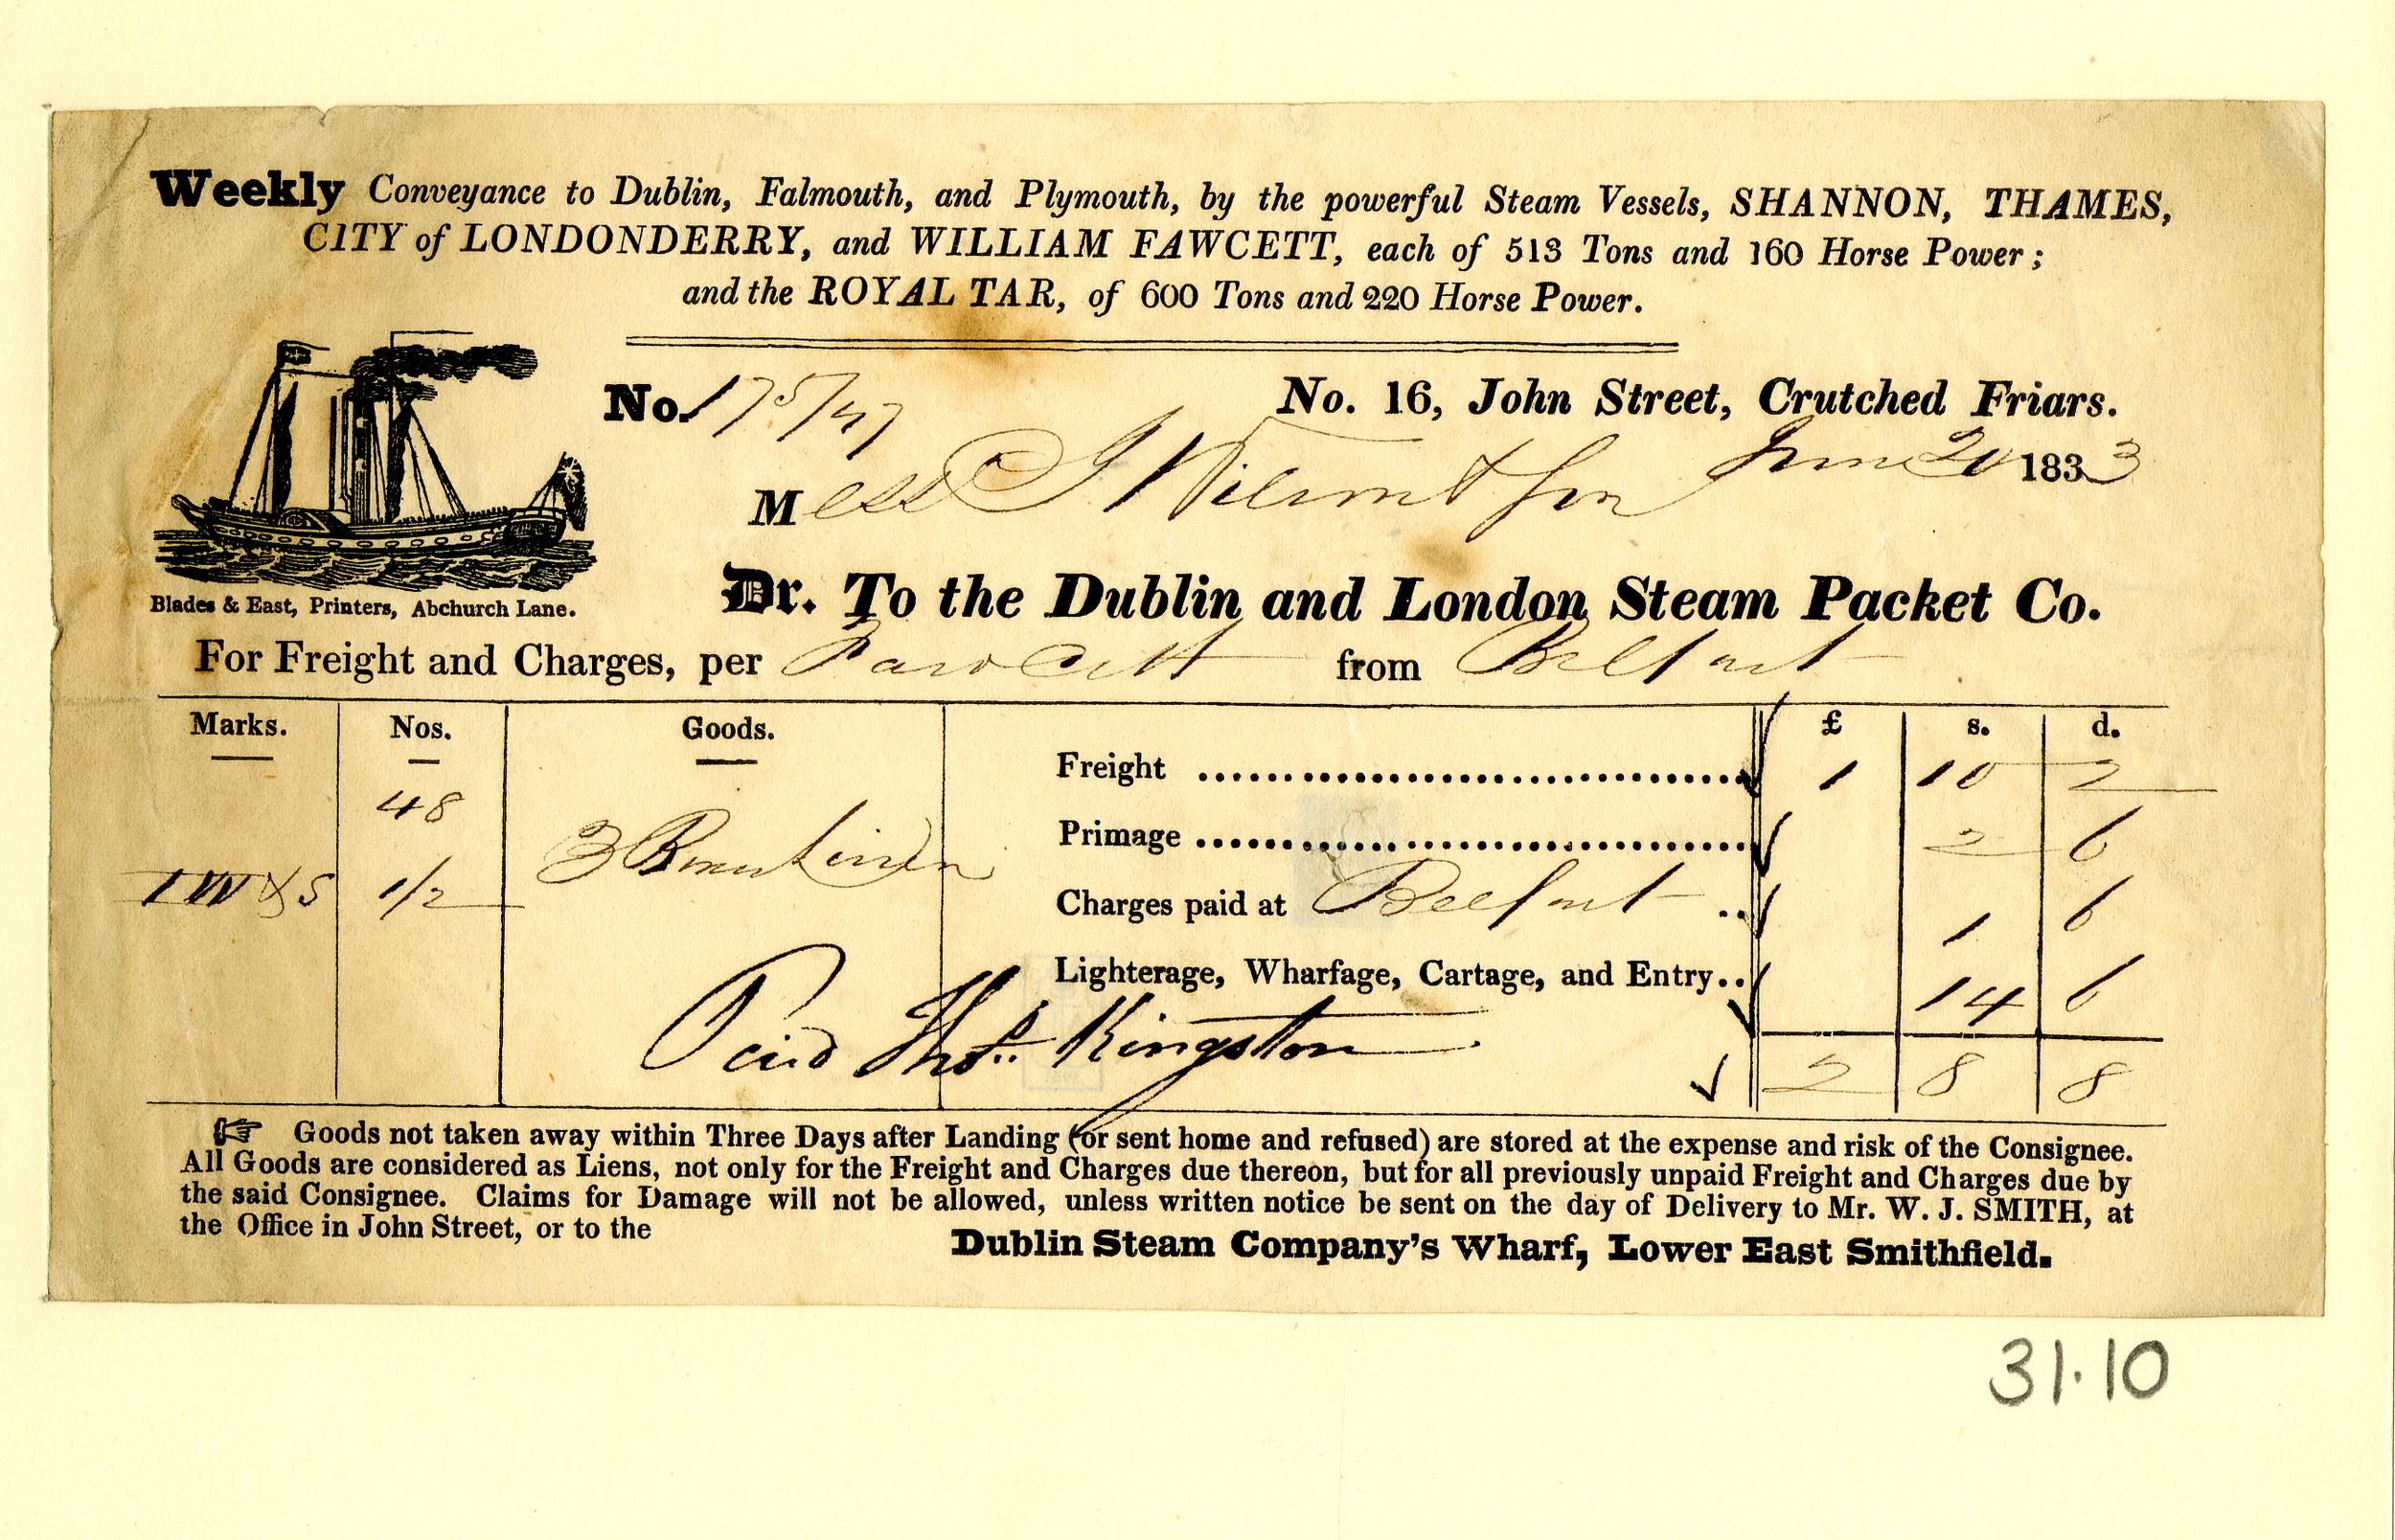 Weekly Conveyance to Dublin, Falmouth, and Plymouth, by the powerful Steam Vessels, SHANNON, THAMES,
CITY of LONDONDERRY, and WILLIAM FAWCETT, each of 513 Tons and 160 Horse Power;
and the ROYAL TAR, of 600 Tons and 220 Horse Power.
No. 175/47 No. 16, John Street, Crutched Friars.
June 1833
Mess & Son
Blades & East, Printers, Abchurch Lane.
Dr. To the Dublin and London Steam Packet Co.
For Freight and Charges, per Fawcett from Belfast
Marks. Nos. Goods. £ s. d.
Freight 1 10 2
48
Primage 2 6
3 Linen
IW&S 1/2
Charges paid at Belfast .. 1 6
Lighterage, Wharfage, Cartage, and Entry.. 14 6
Paid Thos. Kingston
2 8 8
☞ Goods not taken away within Three Days after Landing (or sent home and refused) are stored at the expense and risk of the Consignee.
All Goods are considered as Liens, not only for the Freight and Charges due thereon, but for all previously unpaid Freight and Charges due by
the said Consignee. Claims for Damage will not be allowed, unless written notice be sent on the day of Delivery to Mr. W. J. SMITH, at
the Office in John Street, or to the
Dublin Steam Company's Wharf, Lower East Smithfield.
31.10